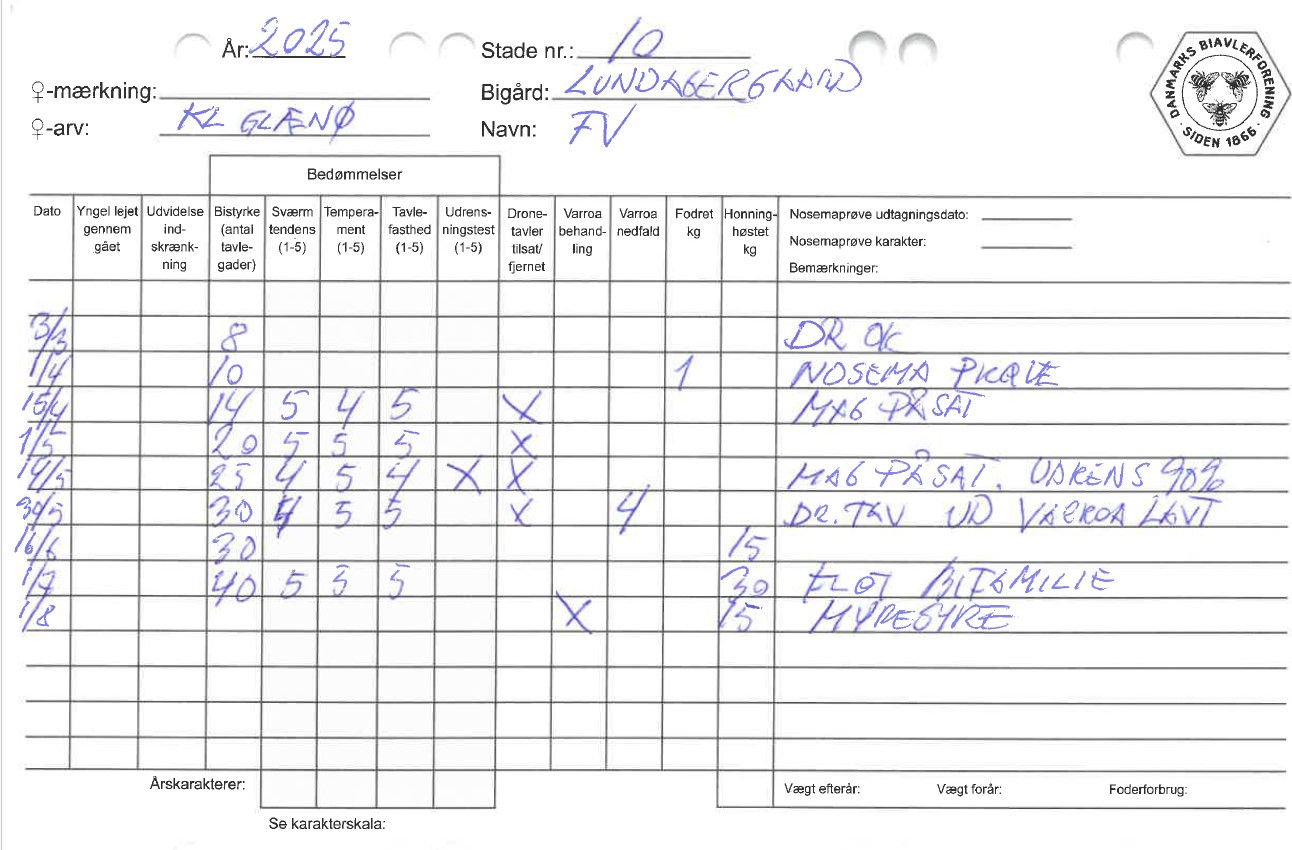 År: 2025 Stade nr.: 10
♀-mærkning: Bigård: LUNDAGERGAARD
♀-arv: KL GLÆNØ Navn: FV
DANMARKS BIAVLERFORENING
· SIDEN 1866 ·
Bedømmelser
Dato Yngel lejet gennem gået Udvidelse ind- skrænk- ning Bistyrke (antal tavle- gader) Sværm tendens (1-5) Tempera- ment (1-5) Tavle- fasthed (1-5) Udrens- ningstest (1-5) Drone- tavler tilsat/ fjernet Varroa behand- ling Varroa nedfald Fodret kg Honning- høstet kg
Nosemaprøve udtagningsdato:
Nosemaprøve karakter:
Bemærkninger:
3/3 8 DR OK
1/4 10 1 NOSEMA PRØVE
15/4 14 5 4 5 X MAG PÅSAT
1/5 20 5 5 5 X
14/5 25 4 5 4 X X MAG PÅSAT. UDRENS 90%
30/5 30 4 5 5 X 4 DR. TAV UD VARROA LAVT
16/6 30 15
1/7 40 5 5 5 30 FLOT BIFAMILIE
1/8 X 15 MYRESYRE
Årskarakterer:
Vægt efterår: Vægt forår: Foderforbrug:
Se karakterskala: